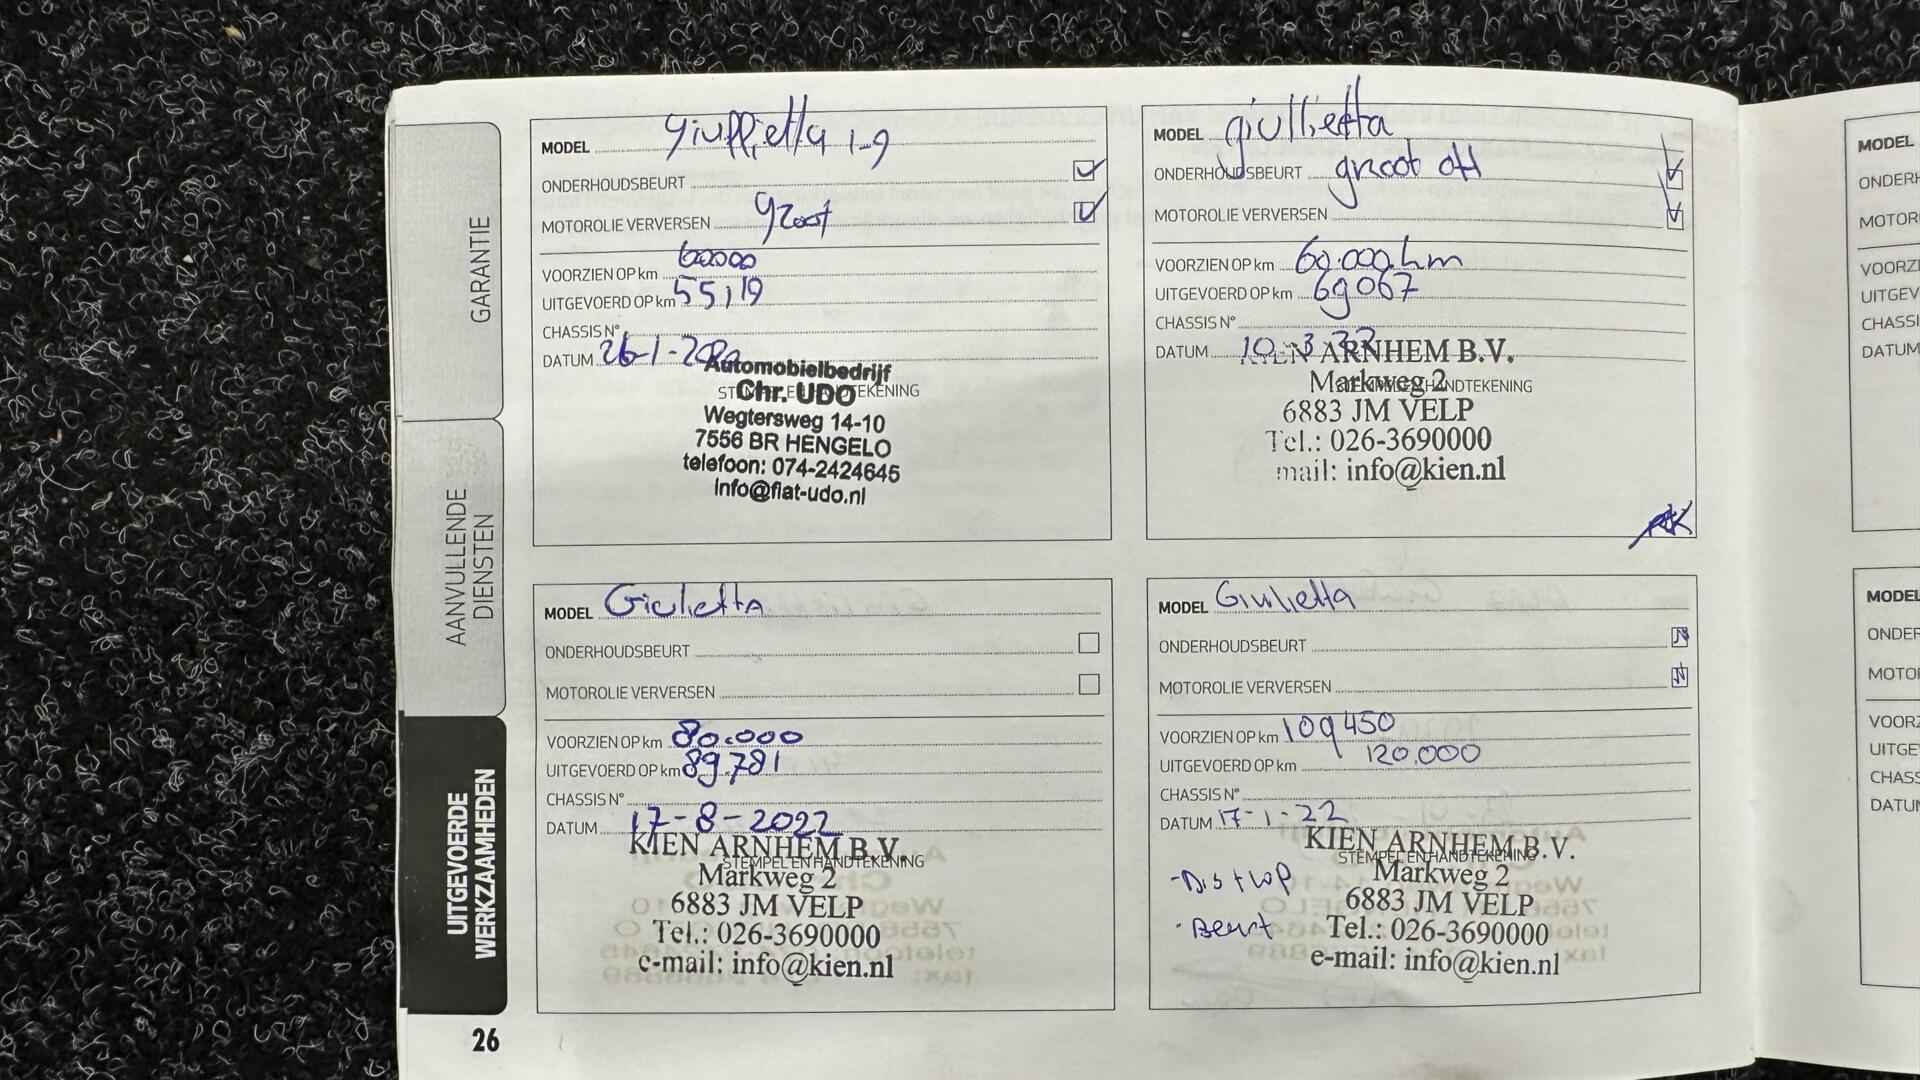 GARANTIE
AANVULLENDE
DIENSTEN
UITGEVOERDE
WERKZAAMHEDEN
26
MODEL Giullietta 1-9
ONDERHOUDSBEURT
MOTOROLIE VERVERSEN groot
VOORZIEN OP km 60000
UITGEVOERD OP km 55119
CHASSIS N°
DATUM 26-1-
Automobielbedrijf
STEMPEL EN HANDTEKENING
Chr. UDO
Wegtersweg 14-10
7556 BR HENGELO
telefoon: 074-2424645
Info@fiat-udo.nl
MODEL giullietta
ONDERHOUDSBEURT groot
MOTOROLIE VERVERSEN
VOORZIEN OP km 60.000 km
UITGEVOERD OP km 69067
CHASSIS N°
DATUM 10-3-22
KIEN ARNHEM B.V.
STEMPEL EN HANDTEKENING
Markweg 2
6883 JM VELP
Tel.: 026-3690000
mail: info@kien.nl
MODEL Giulietta
ONDERHOUDSBEURT
MOTOROLIE VERVERSEN
VOORZIEN OP km 80.000
UITGEVOERD OP km 89.781
CHASSIS N°
DATUM 17-8-2022
KIEN ARNHEM B.V.
STEMPEL EN HANDTEKENING
Markweg 2
6883 JM VELP
Tel.: 026-3690000
e-mail: info@kien.nl
MODEL Giulietta
ONDERHOUDSBEURT
MOTOROLIE VERVERSEN
VOORZIEN OP km 109450
UITGEVOERD OP km 120.000
CHASSIS N°
DATUM 17-1-22
KIEN ARNHEM B.V.
STEMPEL EN HANDTEKENING
- Dis + WP
Markweg 2
6883 JM VELP
- Beurt
Tel.: 026-3690000
e-mail: info@kien.nl
MODEL
ONDERH
MOTOR
VOORZI
UITGEV
CHASSI
DATUM
MODEL
ONDER
MOTO
VOORZ
UITGE
CHASS
DATUM